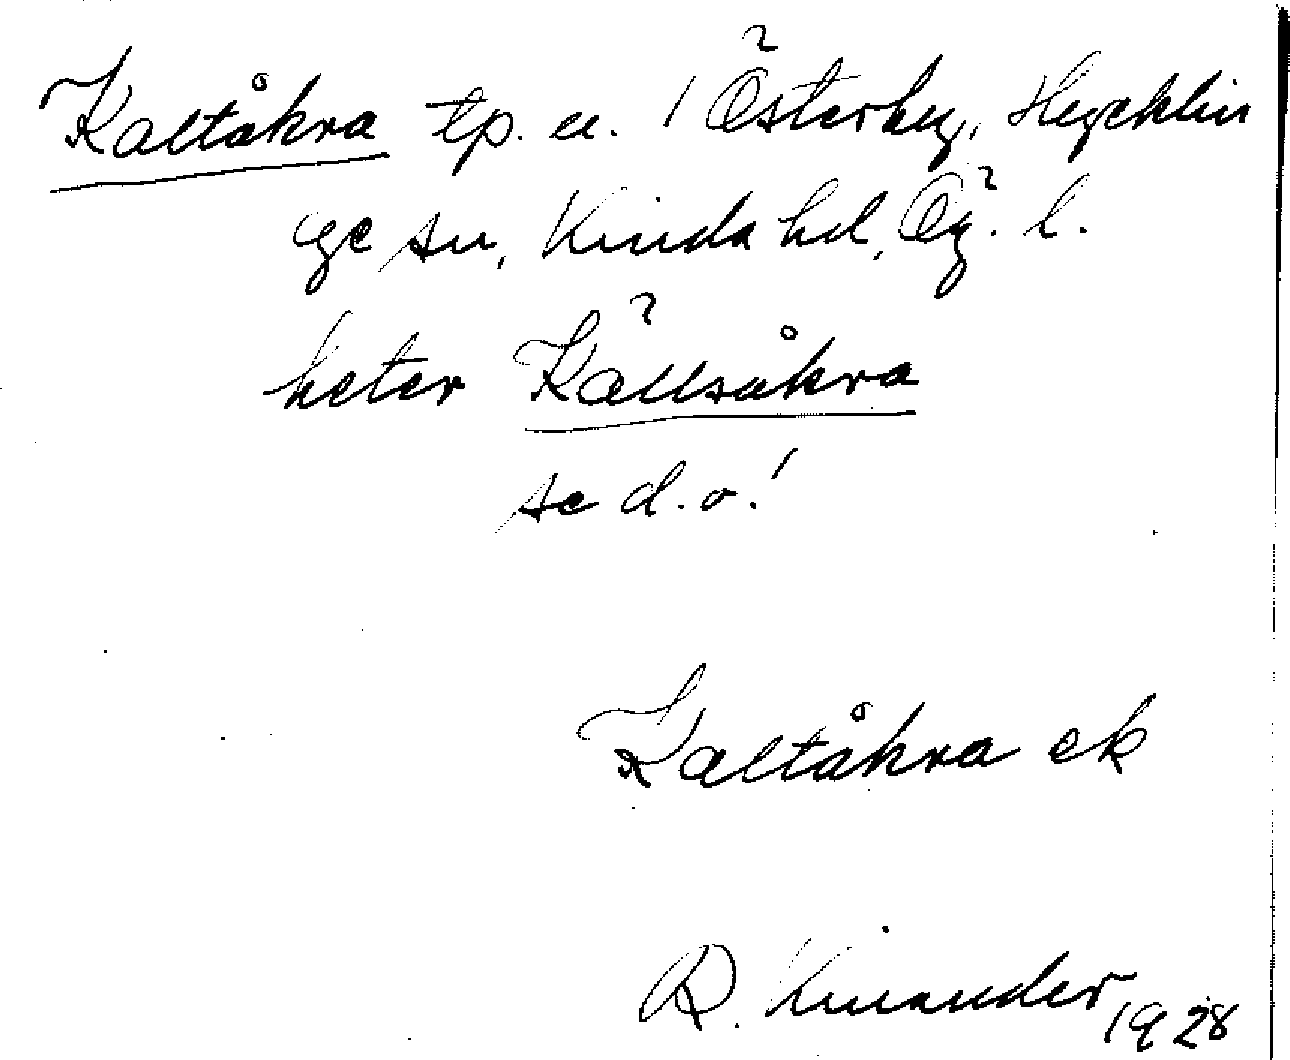 Kaltåkra tp. u. / Österby, Hycklin
ge sn, Kinda hd, Ög. l.
heter Källsåkra
se d. o.!
Kaltåkra ek
R. Kinander 1928